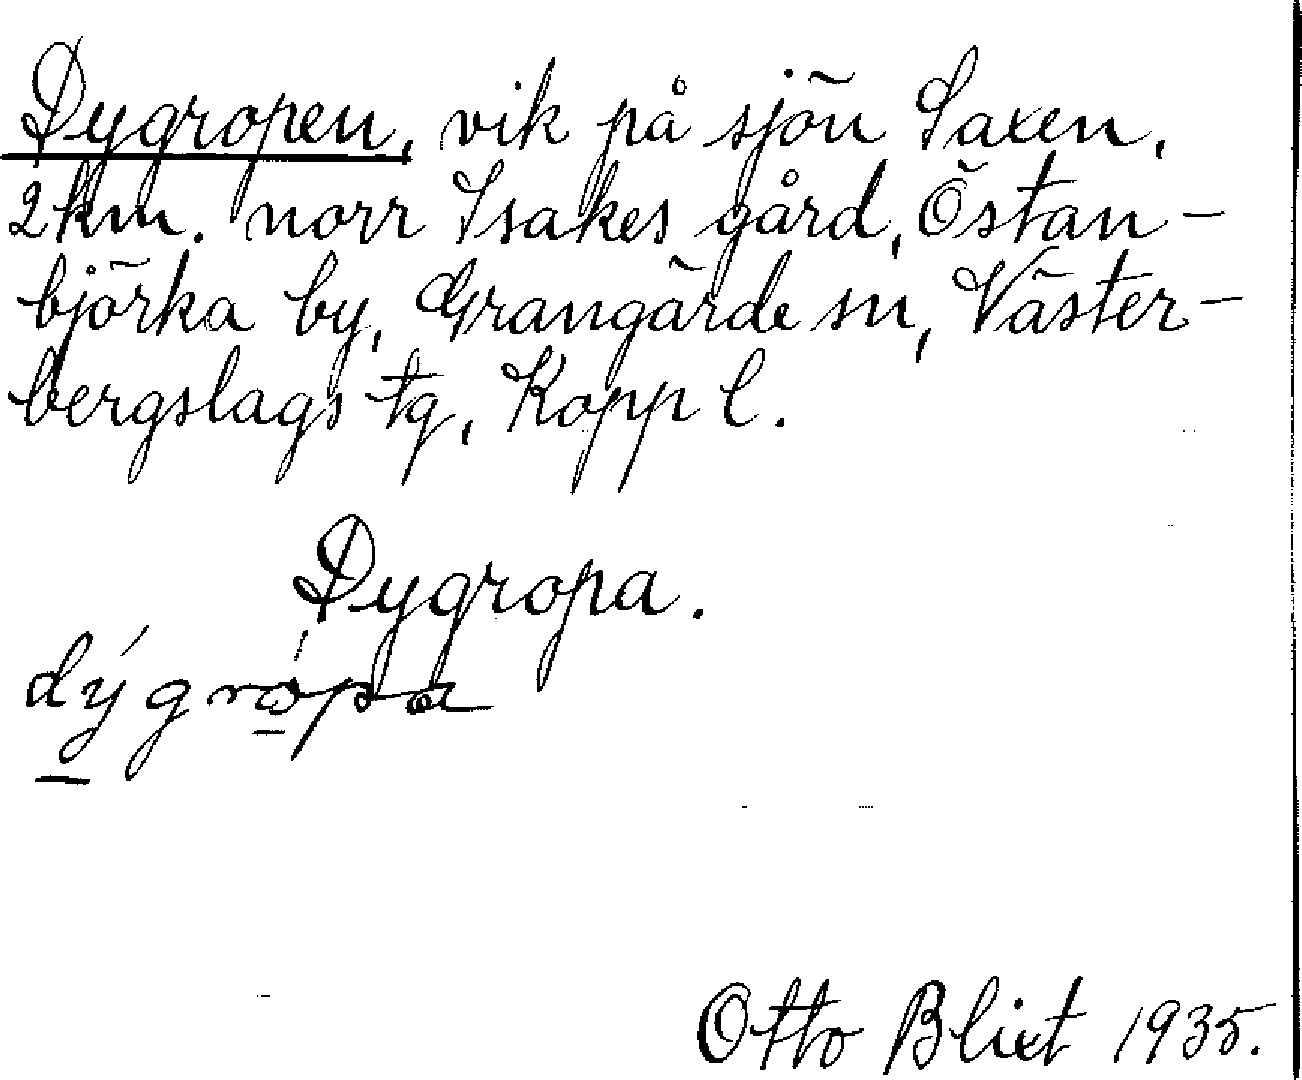 Dygropen, vik på sjön Saxen,
2 km. norr Isakes gård, Östan-
björka by, Grangärde sn, Väster-
bergslags tg, Kopp l.
Dygropa.
dýgròpa
Otto Blixt 1935.